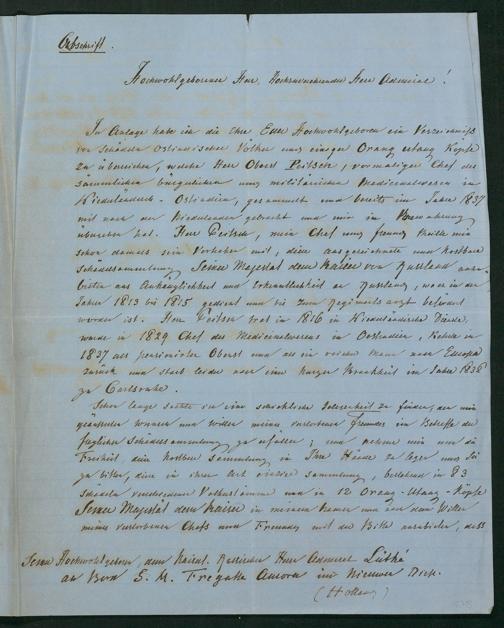 Abschrift.
Hochwohlgeborener Herr, Hochzuverehrender Herr Admiral!
In Anlage habe ich die Ehre Euer Hochwohlgeboren ein Verzeichniß
von Schädeln Ostindischer Völker und einiger Orang-utang Köpfe
zu überreichen, welche Herr Oberst Peitsch, vormaliger Chef des
sämmtlichen bürgerlichen und militärischen Medicinalwesens in
Niederländisch-Ostindien, gesammelt und bereits im Jahre 1837
mit nach den Niederlanden gebracht und mir in Verwahrung
übergeben hat. Herr Peitsch, mein Chef und Freund, theilte mir
schon damals sein Vorhaben mit, diese ausgezeichnete und kostbare
Schädelsammlung Seiner Majestät dem Kaiser von Russland
aus Anhänglichkeit und Erkenntlichkeit an Russland, wo er in den
Jahren 1813 bis 1815 gedient und bis zum Regimentsarzt befördert
worden ist. Herr Peitsch trat in 1816 in Niederländische Dienste,
wurde in 1829 Chef des Medicinalwesens in Ostindien, kehrte in
1837 als pensionirter Oberst und als ein reicher Mann nach Europa
zurück und starb leider nach einer kurzen Krankheit im Jahre 1838
zu Carlsruhe.
Schon lange suchte ich eine schickliche Gelegenheit zu finden, den mir
geäusserten Wunsch und Willen meines verstorbenen Freundes in Betreff der
fraglichen Schädelsammlung zu erfüllen; und nehme mir nun die
Freiheit diese kostbare Sammlung in Ihre Hände zu legen und Sie
zu bitten, diese in ihrer Art Sammlung, bestehend in 83
Schädeln verschiedener Volksstämme und in 12 Orang-Utang-Köpfe
Seiner Majestät dem Kaiser in meinem Namen und nach dem Willen
meines verstorbenen Chefs und Freundes mit der Bitte anzubieten, dass
Seiner Hochwohlgeboren, dem Kaiserl. Russischen Herr Admiral Lütké
an Bord S. M. Fregatte Aurora im Nieuwe Diep.
(Holland)